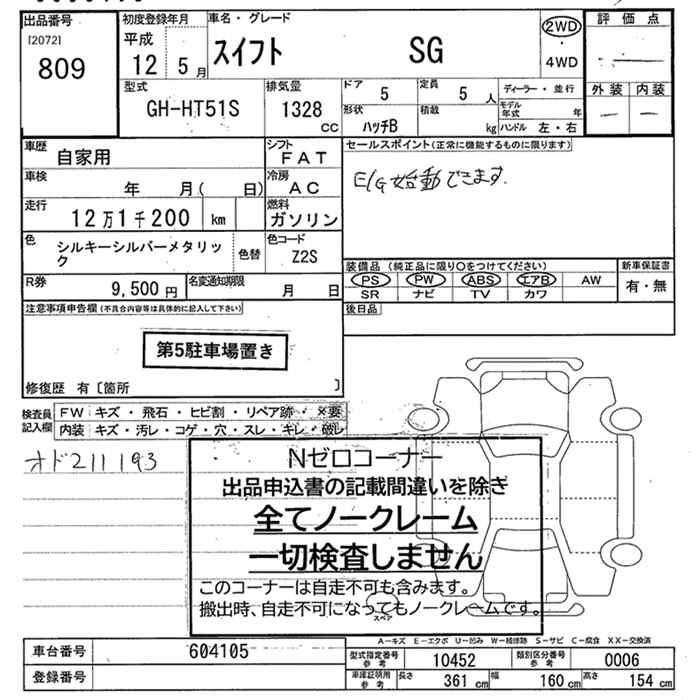 出品番号
[2072]
809
初度登録年月
平成
12 5月
車名・グレード
スイフト SG
2WD
・
4WD
評価点
外装 内装
— —
型式
GH-HT51S
排気量
1328
CC
ドア
5
定員
5 人
形状
ハッチB
積載
kg
ディーラー・並行
モデル年式 年
ハンドル 左・右
車歴
自家用
シフト
FAT
車検
年 月( 日)
冷房
AC
走行
12万1千200 km
燃料
ガソリン
色
シルキーシルバーメタリック
色替
色コード
Z2S
R券
9,500 円
名変通知期限
月 日
セールスポイント(正常に機能するものに限ります)
E/G始動できます.
装備品(純正品に限り○をつけてください)
PS PW ABS エアB AW
SR ナビ TV カワ
新車保証書
有・無
後日品
注意事項申告欄(不具合内容等は具体的に記入して下さい)
第5駐車場置き
修復歴 有〔箇所 〕
検査員記入欄
FW キズ・飛石・ヒビ割・リペア跡・×要
内装 キズ・汚レ・コゲ・穴・スレ・キレ・破レ
オド211193
Nゼロコーナー
出品申込書の記載間違いを除き
全てノークレーム
一切検査しません
このコーナーは自走不可も含みます。
搬出時、自走不可になってもノークレームです。
スペア
A―キズ E―エクボ U―凹み W―補修跡 S―サビ C―腐食 XX―交換済
車台番号
604105
登録番号
型式指定番号
参考
10452
類別区分番号
参考
0006
車庫証明用
参考
長さ
361 cm
幅
160 cm
高さ
154 cm